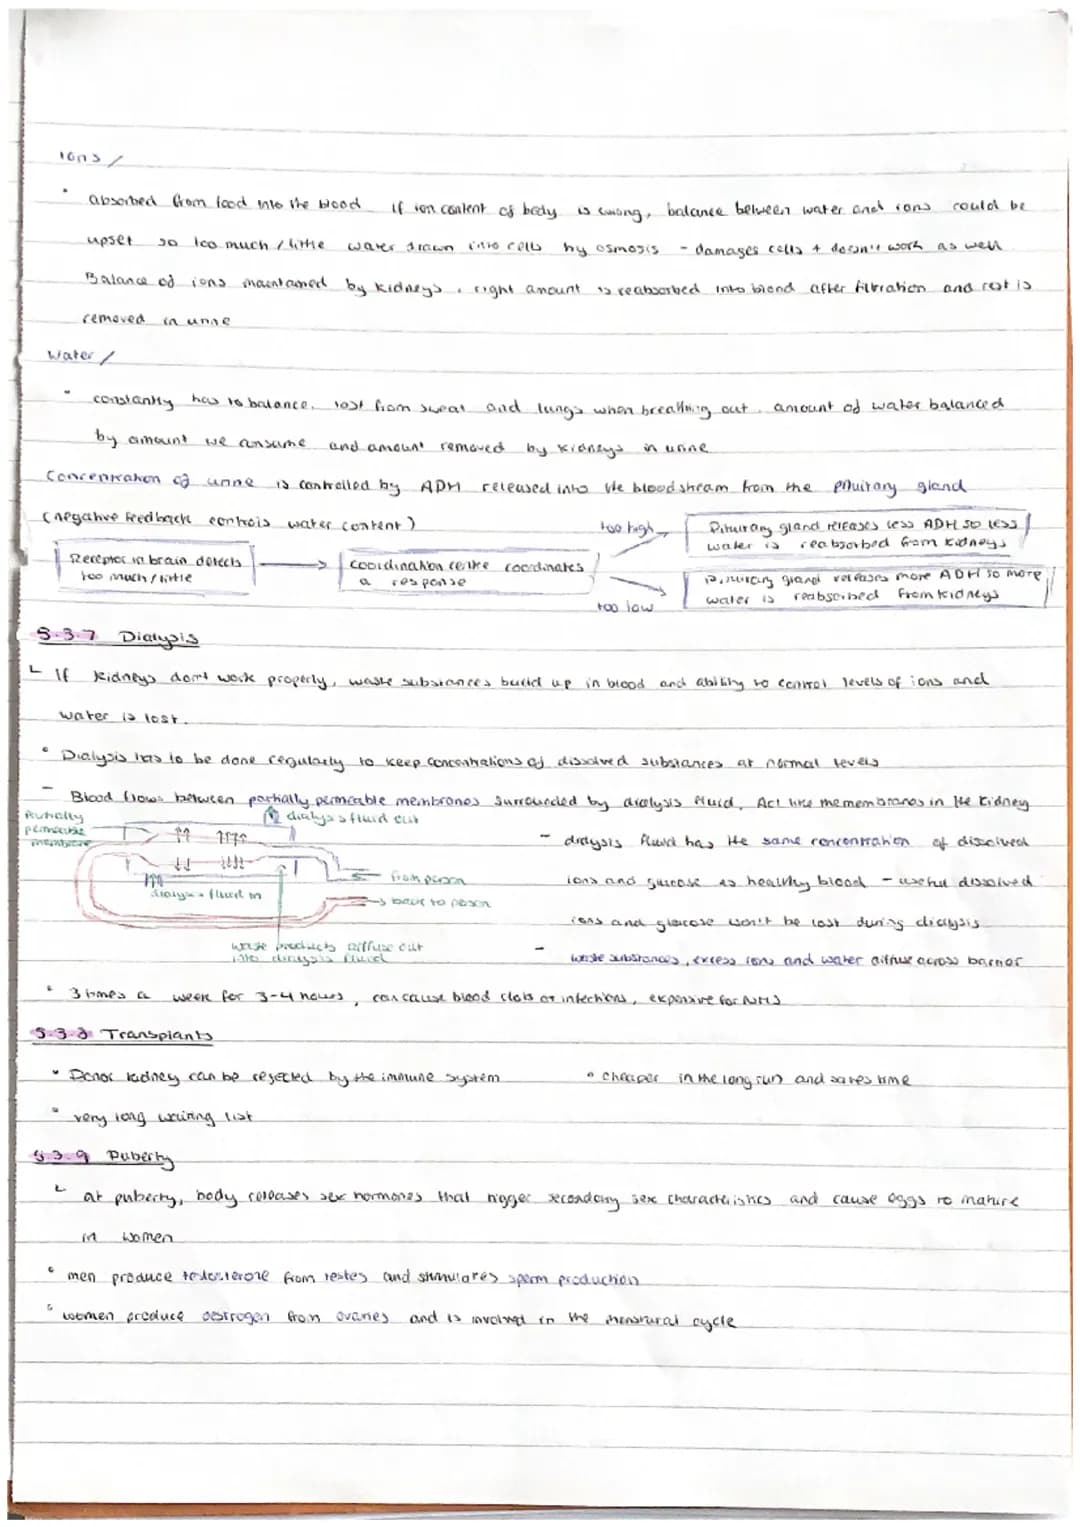 Ions /
• absorbed from food into the blood. If ion content of body is wrong, balance between water and ions could be
upset so too much / little water drawn into cells by osmosis - damages cells + doesn't work as well
Balance of ions maintained by kidneys. right amount is reabsorbed into blood after filtration and rest is
removed in urine
Water /
• constantly has to balance. lost from sweat and lungs when breathing out. amount of water balanced
by amount we consume and amount removed by kidneys in urine
Concentration of urine is controlled by ADH released into the bloodstream from the pituitary gland
(negative feedback controls water content)
Receptor in brain detects
too much / little
Coordination centre coordinates
a response
too high
Pituitary gland releases less ADH so less
water is reabsorbed from kidneys
too low
Pituitary gland releases more ADH so more
water is reabsorbed from kidneys
5.3.7 Dialysis
If kidneys don't work properly, waste substances build up in blood and ability to control levels of ions and
water is lost.
• Dialysis has to be done regularly to keep concentrations of dissolved substances at normal levels
- Blood flows between partially permeable membranes surrounded by dialysis fluid. Act like the membranes in the kidney
Partially
permeable
membrane
dialysis fluid out
from person
back to person
dialysis fluid in
waste products diffuse out
into dialysis fluid
- dialysis fluid has the same concentration of dissolved
ions and glucose as healthy blood - useful dissolved
ions and glucose won't be lost during dialysis
- waste substances, excess ions and water diffuse across barrier
• 3 times a week for 3-4 hours, can cause blood clots or infections, expensive for NHS
5.3.8 Transplants
• Donor kidney can be rejected by the immune system
• cheaper in the long run and saves time
• very long waiting list
5.3.9 Puberty
at puberty, body releases sex hormones that trigger secondary sex characteristics and cause eggs to mature
in women
• men produce testosterone from testes and stimulates sperm production
• women produce oestrogen from ovaries and is involved in the menstrural cycle